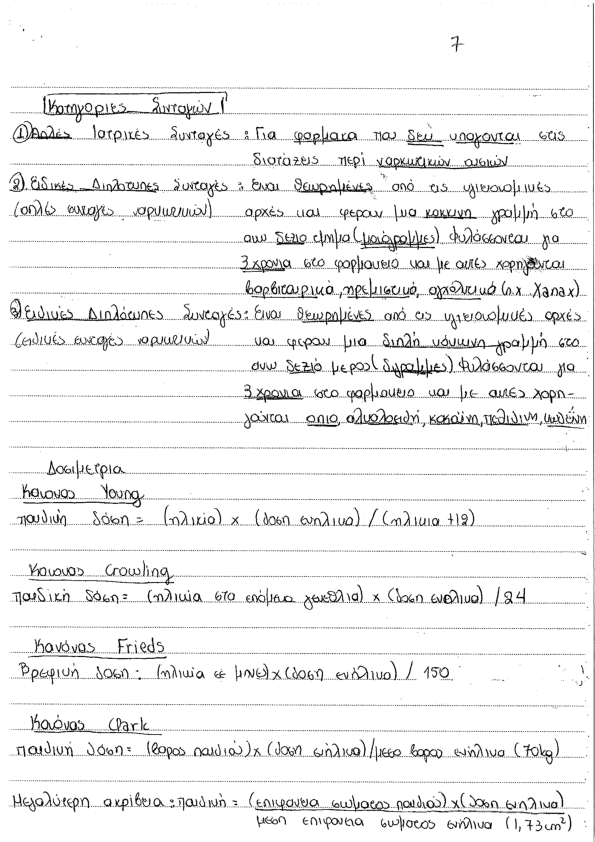 7
Κατηγορίες Συνταγών
① Απλές Ιατρικές Συνταγές: Για φαρμακα που δεν υπαγονται στις
διατάξεις περί ναρκωτικών ουσιών
② Ειδικές Διπλότυπες Συνταγές: Ειναι θεωρημένες από τις υγειονομικές
(απλές συνταγές ναρκωτικών) αρχές και φερουν μια κοκκινη γραμμή στο
ανω δεξιο τμημα (μονόγραμμες) Φυλάσσονται για
3 χρονια στο φαρμακειο και με αυτές χορηγουνται
βαρβιτουρικά, ηρεμιστικά, αγχολυτικά (π.χ. Xanax)
③ Ειδικές Διπλότυπες Συνταγές: Ειναι θεωρημένες από τις υγειονομικές αρχές
(ειδικές συνταγές ναρκωτικών) και φερουν μια διπλή κόκκινη γραμμή στο
ανω δεξιό μερος (δίγραμμες) Φυλάσσονται για
3 χρονια στο φαρμακειο και με αυτες χορη-
γούνται οπιο, αλκαλοειδή, κοκαίνη, πεθιδίνη,
Δοσιμετρια
Κανονας Young
παιδική δόση = (ηλικία) x (δοση ενηλικα) / (ηλικια +12)
Κανονας Crowling
παιδική δόση = (ηλικία στα επόμενα γενεθλια) x (δοση ενηλικα) / 24
Κανόνας Frieds
Βρεφική δοση = (ηλικία σε μήνες) x (δοση ενήλικα) / 150
Κανόνας Clark
παιδική δόση = (βαρος παιδιού) x (δοση ενήλικα) / μεσο βαρος ενήλικα (70kg)
Μεγαλύτερη ακρίβεια: παιδική = (επιφανεια σωματος παιδιού) x (δοση ενηλικα)
μεση επιφανεια σωματος ενήλικα (1,73cm²)